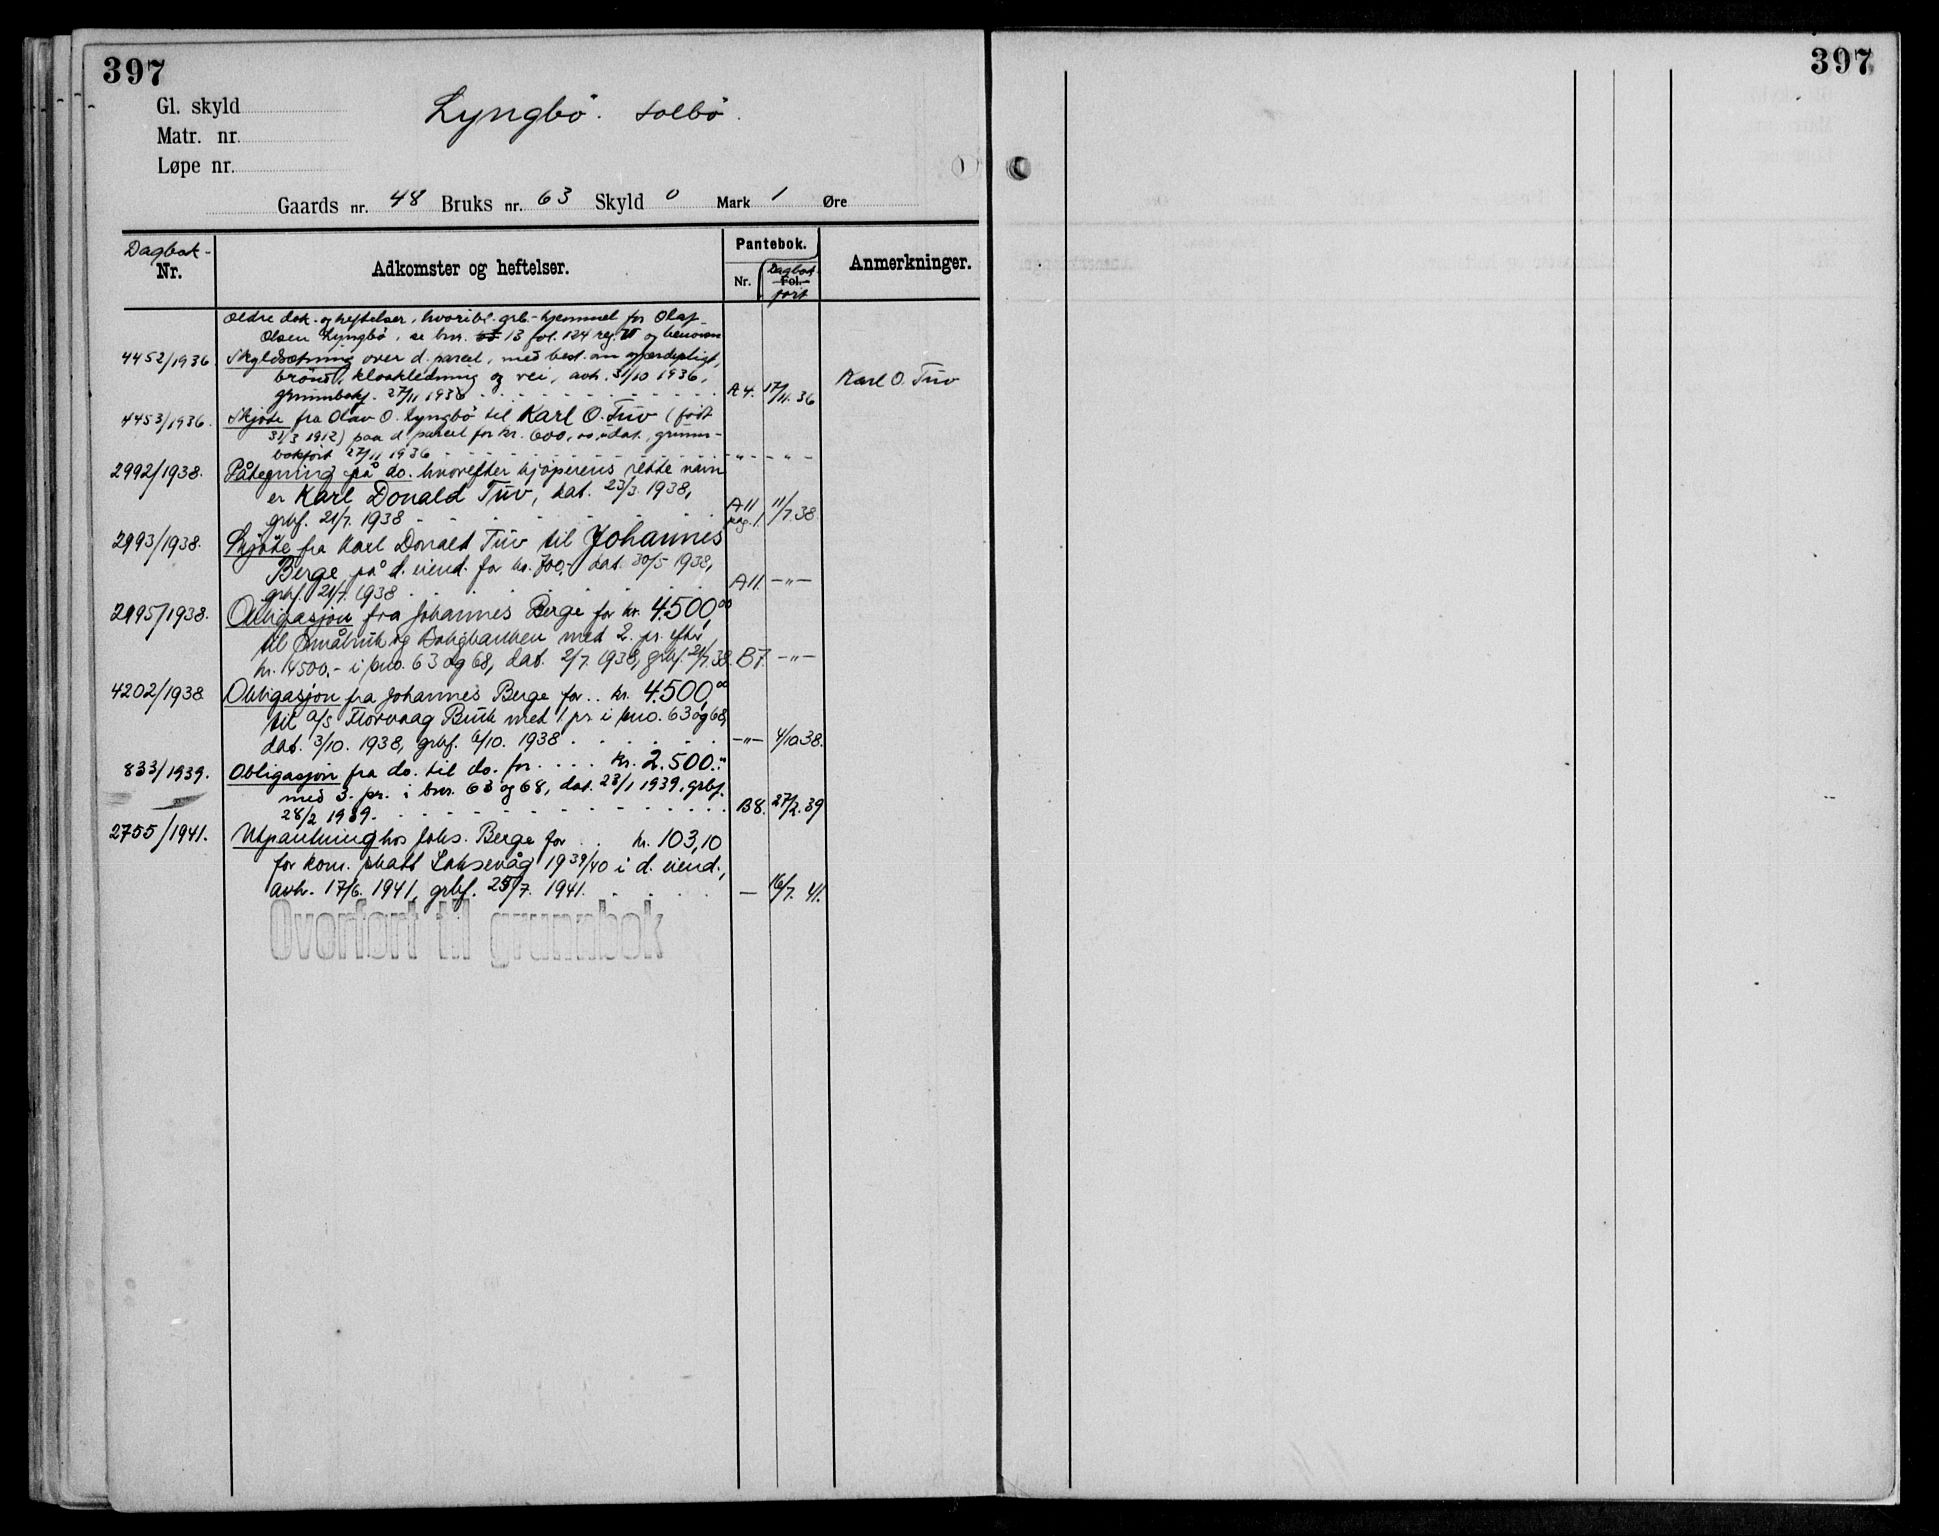 397
397
Gl. skyld
Lyngbö. Solbö.
Matr. nr.
Løpe nr.
Gaards nr. 48 Bruks nr. 63 Skyld 0 Mark 1 Øre
Dagbok-
Nr.
Adkomster og heftelser.
Pantebok.
Nr.
Dagbok-
Fol.
fört
Anmerkninger.
Ældre dok. og heftelser, hvoribl. grb.-hjemmel for Olaf
Olsen Lyngbö, se bnr. 13 fol. 124 reg. VI og henvisn
4452/1936. Skyldsætning over d. parcel, med best. om gjerdepligt,
brönd, kloakledning og vei, avh. 31/10 1936,
grunnbokf. 27/11 1936 A4. 17/11. 36 Karl O. Tuv
4453/1936. Skjöte fra Olav O. Lyngbö til Karl O. Tuv (födt
31/3 1912) paa d parcel for kr. 600,00, udat., grunn-
bokfört 27/11 1936 - " - - " -
2992/1938. Påtegning på do. hvorefter kjöperens rette navn
er Karl Donald Tuv, dat. 23/3. 1938,
grbf. 21/7. 1938 A11 pag. 1. 11/7.38.
2993/1938. Skjöte fra Karl Donald Tuv til Johannes
Berge, på d. eiend. for kr. 700,- dat. 30/5 1938,
grbf. 21/7. 1938 A11. - " -
2995/1938. Obligasjon fra Johannes Berge for kr. 4.500,00
til Småbruk og Boligbanken med 2. pr. efter
kr. 4500.- i bno. 63 og 68, dat. 2/7. 1938, grbf. 21/7. 38. B7. - " -
4202/1938 Obligasjon fra Johannes Berge for .. kr. 4.500,00
til A/S Florvaag Bruk med 1 pr i bno. 63 og 68,
dat. 3/10. 1938, grbf. 6/10. 1938 - " - 4/10.38.
833/1939. Obligasjon fra do. til do. for .... kr. 2.500.
med 3. pr. i bnr. 63 og 68, dat. 23/1 1939, grbf.
28/2 1939. B8. 27/2.39
2755/1941. Utpantning hos Johs. Berge for .. kr. 103,10
for kom. skatt Laksevåg 1939/40 i d. eiend.,
avh. 17/6. 1941, grbf. 25/7. 1941. - 16/7. 41.
Overført til grunnbok